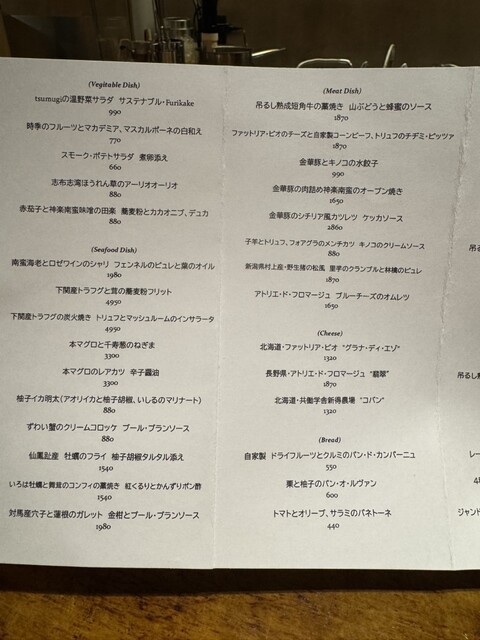 (Vegitable Dish)
tsumugiの温野菜サラダ サステナブル・Furikake
990
時季のフルーツとマカデミア、マスカルポーネの白和え
770
スモーク・ポテトサラダ 煮卵添え
660
志布志湾ほうれん草のアーリオオーリオ
880
赤茄子と神楽南蛮味噌の田楽 蕎麦粉とカカオニブ、デュカ
880
(Seafood Dish)
南蛮海老とロゼワインのシャリ フェンネルのピュレと葉のオイル
1980
下関産トラフグと茸の蕎麦粉フリット
4950
下関産トラフグの炭火焼き トリュフとマッシュルームのインサラータ
4950
本マグロと千寿葱のねぎま
3300
本マグロのレアカツ 辛子醤油
3300
柚子イカ明太(アオリイカと柚子胡椒、いしるのマリナート)
880
ずわい蟹のクリームコロッケ ブール・ブランソース
880
仙鳳趾産 牡蠣のフライ 柚子胡椒タルタル添え
1540
いろは牡蠣と舞茸のコンフィの藁焼き 紅くるりとかんずりポン酢
1540
対馬産穴子と蓮根のガレット 金柑とブール・ブランソース
1980
(Meat Dish)
吊るし熟成短角牛の藁焼き 山ぶどうと蜂蜜のソース
1870
ファットリア・ビオのチーズと自家製コーンビーフ、トリュフのチヂミ・ピッツァ
1870
金華豚とキノコの水餃子
990
金華豚の肉詰め神楽南蛮のオーブン焼き
1650
金華豚のシチリア風カツレツ ケッカソース
2860
子羊とトリュフ、フォアグラのメンチカツ キノコのクリームソース
880
新潟県村上産・野生猪の松風 里芋のクランブルと林檎のピュレ
1870
アトリエ・ド・フロマージュ ブルーチーズのオムレツ
1650
(Cheese)
北海道・ファットリア・ビオ “グラナ・ディ・エゾ”
1320
長野県・アトリエ・ド・フロマージュ “翡翠”
1870
北海道・共働学舎新得農場 “コバン”
1320
(Bread)
自家製 ドライフルーツとクルミのパン・ド・カンパーニュ
550
栗と柚子のパン・オ・ルヴァン
600
トマトとオリーブ、サラミのパネトーネ
440
吊る
吊るし熟
レー
ジャンド